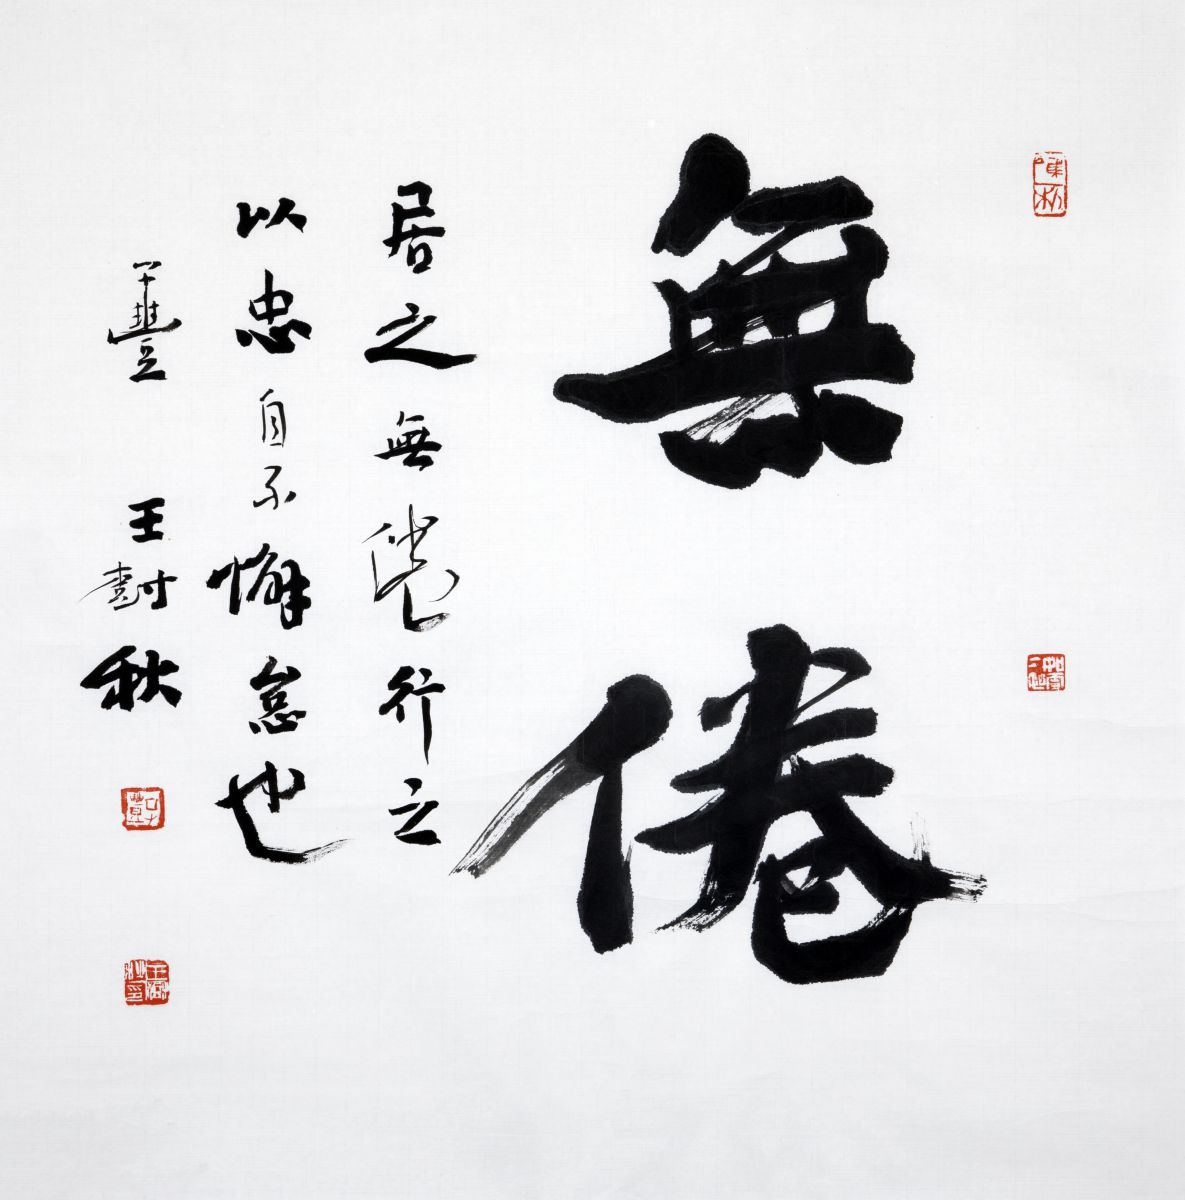 無倦
居之無倦行之
以忠自不懈怠也
王封秋